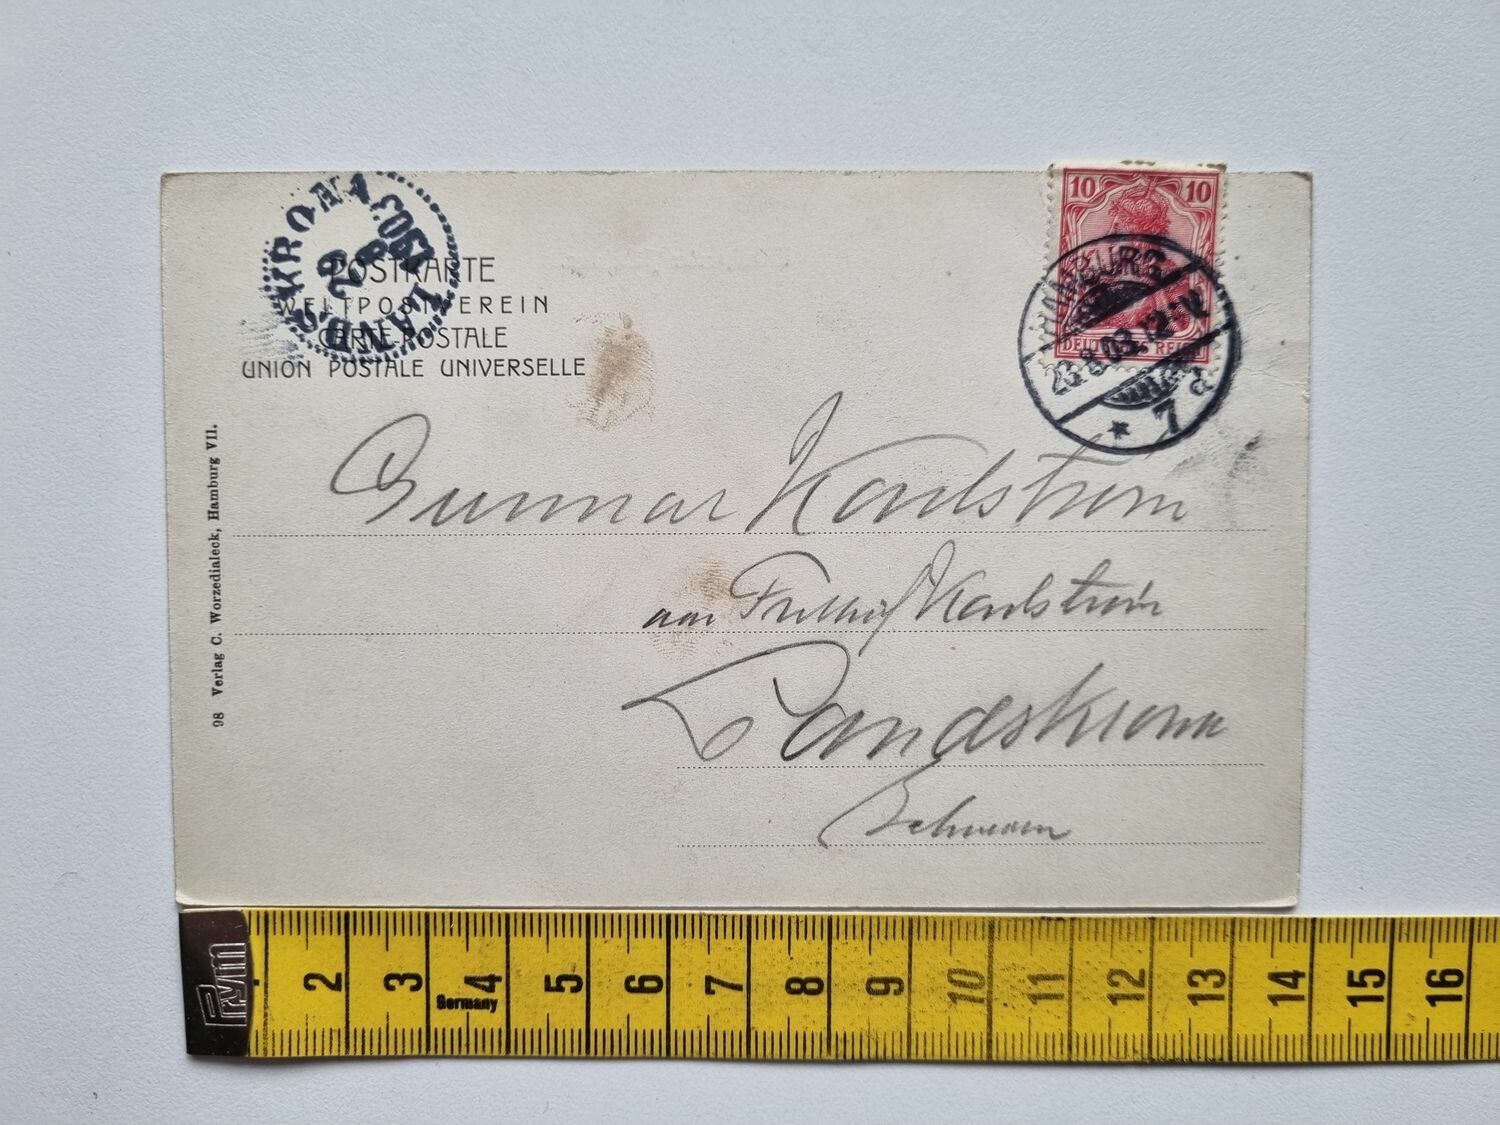 LANDSKRONA
1903
POSTKARTE
WELTPOSTVEREIN
CARTE POSTALE
UNION POSTALE UNIVERSELLE
10 10
DEUTSCHES REICH
HAMBURG
8.03.12-1N
* 7 d
98 Verlag C. Worzedialeck, Hamburg VII.
Gunnar Karlström
Karlström
Landskrona
Schweden
Prym
2 3 4 5 6 7 8 9 10 11 12 13 14 15 16
Germany